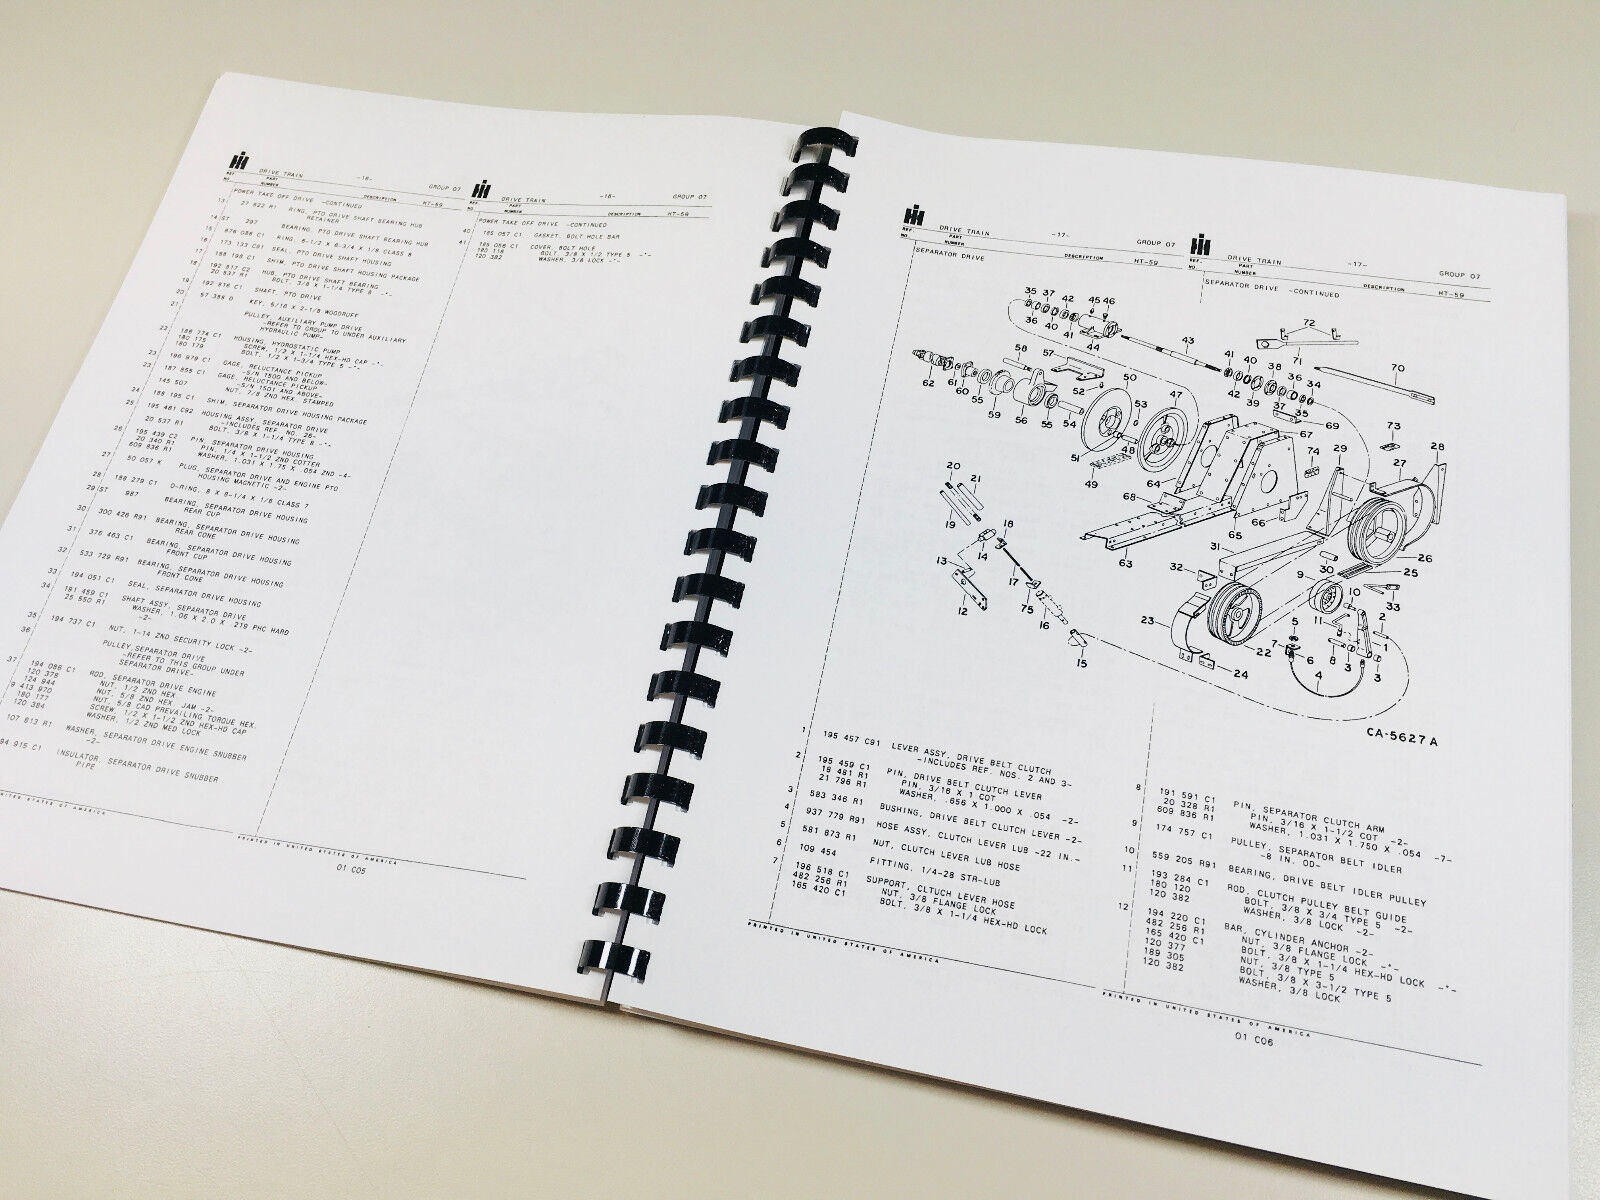 IH
DRIVE TRAIN -16- GROUP 07
REF. NO. PART NUMBER DESCRIPTION HT-59
POWER TAKE OFF DRIVE -CONTINUED
13 27 822 R1 RING, PTO DRIVE SHAFT BEARING HUB
RETAINER
14 ST 297 BEARING, PTO DRIVE SHAFT BEARING HUB
15 676 088 C1 RING, 6-1/2 X 6-3/4 X 1/8 CLASS 8
16 173 133 C91 SEAL, PTO DRIVE SHAFT HOUSING
188 198 C1 SHIM, PTO DRIVE SHAFT HOUSING PACKAGE
18 192 817 C2 HUB, PTO DRIVE SHAFT BEARING
20 537 R1 BOLT, 3/8 X 1-1/4 TYPE 8 -*-
19 192 816 C1 SHAFT, PTO DRIVE
20 57 388 D KEY, 5/16 X 2-1/8 WOODRUFF
21 PULLEY, AUXILIARY PUMP DRIVE
-REFER TO GROUP 10 UNDER AUXILIARY
HYDRAULIC PUMP-
22 186 774 C1 HOUSING, HYDROSTATIC PUMP
180 175 SCREW, 1/2 X 1-1/4 HEX-HD CAP -*-
180 179 BOLT, 1/2 X 1-3/4 TYPE 5 -*-
23 186 979 C1 GAGE, RELUCTANCE PICKUP
-S/N 1500 AND BELOW-
23 187 855 C1 GAGE, RELUCTANCE PICKUP
-S/N 1501 AND ABOVE-
145 507 NUT, 7/8 2ND HEX STAMPED
24 188 195 C1 SHIM, SEPARATOR DRIVE HOUSING PACKAGE
25 195 461 C92 HOUSING ASSY, SEPARATOR DRIVE
-INCLUDES REF NO. 26-
20 537 R1 BOLT, 3/8 X 1-1/4 TYPE 8 -*-
26 195 439 C2 PIN, SEPARATOR DRIVE HOUSING
20 340 R1 PIN, 1/4 X 1-1/2 2ND COTTER
609 836 R1 WASHER, 1.031 X 1.75 X .054 2ND -4-
27 50 057 K PLUG, SEPARATOR DRIVE AND ENGINE PTO
HOUSING MAGNETIC -2-
28 188 279 C1 O-RING, 8 X 8-1/4 X 1/8 CLASS 7
29 ST 987 BEARING, SEPARATOR DRIVE HOUSING
REAR CUP
30 300 426 R91 BEARING, SEPARATOR DRIVE HOUSING
REAR CONE
31 376 463 C1 BEARING, SEPARATOR DRIVE HOUSING
FRONT CUP
32 533 729 R91 BEARING, SEPARATOR DRIVE HOUSING
FRONT CONE
33 194 051 C1 SEAL, SEPARATOR DRIVE HOUSING
34 191 459 C1 SHAFT ASSY, SEPARATOR DRIVE
25 550 R1 WASHER, 1.06 X 2.0 X .219 PHC HARD
-2-
35 194 737 C1 NUT, 1-14 2ND SECURITY LOCK -2-
36 PULLEY, SEPARATOR DRIVE
-REFER TO THIS GROUP UNDER
SEPARATOR DRIVE-
37 194 086 C1 ROD, SEPARATOR DRIVE ENGINE
120 378 NUT, 1/2 2ND HEX
124 944 NUT, 5/8 2ND HEX JAM -2-
9 413 970 NUT, 5/8 CAD PREVAILING TORQUE HEX.
180 177 SCREW, 1/2 X 1-1/2 2ND HEX-HD CAP
120 384 WASHER, 1/2 2ND MED LOCK
107 813 R1 WASHER, SEPARATOR DRIVE ENGINE SNUBBER
-2-
94 915 C1 INSULATOR, SEPARATOR DRIVE SNUBBER
PIPE
UNITED STATES OF AMERICA
IH
DRIVE TRAIN -16- GROUP 07
REF. NO. PART NUMBER DESCRIPTION HT-59
POWER TAKE OFF DRIVE -CONTINUED
40 185 057 C1 GASKET, BOLT HOLE BAR
41 195 056 C1 COVER, BOLT HOLE
180 118 BOLT, 3/8 X 1/2 TYPE 5 -*-
120 382 WASHER, 3/8 LOCK -*-
PRINTED IN UNITED STATES OF AMERICA
01 C05
IH
DRIVE TRAIN -17- GROUP 07
REF. NO. PART NUMBER DESCRIPTION HT-59
SEPARATOR DRIVE
IH
DRIVE TRAIN -17- GROUP 07
REF. NO. PART NUMBER DESCRIPTION HT-59
SEPARATOR DRIVE -CONTINUED
35 37 42 45 46
36 40 41 44
72
43
71
70
41 40 38 36 34
42 39 37 35
58 57 50
62 61 60 55 59 56 55 54
52 53 47
51 48 49
69 67 73
29 28
74 27
64 68 66 65 63
20 21
19 18
14
13 12
17 75 16 15
31 32 30
26 25
9 10 33
23 22 24
11 2 1
5 7 6 8 3 3
4
CA-5627A
1 195 457 C91 LEVER ASSY, DRIVE BELT CLUTCH
-INCLUDES REF. NOS. 2 AND 3-
2 195 459 C1 PIN, DRIVE BELT CLUTCH LEVER
18 481 R1 PIN, 3/16 X 1 COT
21 796 R1 WASHER, .656 X 1.000 X .054 -2-
3 583 346 R1 BUSHING, DRIVE BELT CLUTCH LEVER -2-
4 937 779 R91 HOSE ASSY, CLUTCH LEVER LUB -22 IN.-
5 581 873 R1 NUT, CLUTCH LEVER LUB HOSE
6 109 454 FITTING, 1/4-28 STR-LUB
7 196 518 C1 SUPPORT, CLTUCH LEVER HOSE
482 256 R1 NUT, 3/8 FLANGE LOCK
165 420 C1 BOLT, 3/8 X 1-1/4 HEX-HD LOCK
PRINTED IN UNITED STATES OF AMERICA
8 191 591 C1 PIN, SEPARATOR CLUTCH ARM
20 328 R1 PIN, 3/16 X 1-1/2 COT -2-
609 836 R1 WASHER, 1.031 X 1.750 X .054 -7-
9 174 757 C1 PULLEY, SEPARATOR BELT IDLER
-8 IN. OD-
10 559 205 R91 BEARING, DRIVE BELT IDLER PULLEY
11 193 284 C1 ROD, CLUTCH PULLEY BELT GUIDE
180 120 BOLT, 3/8 X 3/4 TYPE 5 -2-
120 382 WASHER, 3/8 LOCK -2-
12 194 220 C1 BAR, CYLINDER ANCHOR -2-
482 256 R1 NUT, 3/8 FLANGE LOCK -*-
165 420 C1 BOLT, 3/8 X 1-1/4 HEX-HD LOCK -*-
120 377 NUT, 3/8 TYPE 5
189 305 BOLT, 3/8 X 3-1/2 TYPE 5
120 382 WASHER, 3/8 LOCK
PRINTED IN UNITED STATES OF AMERICA
01 C06